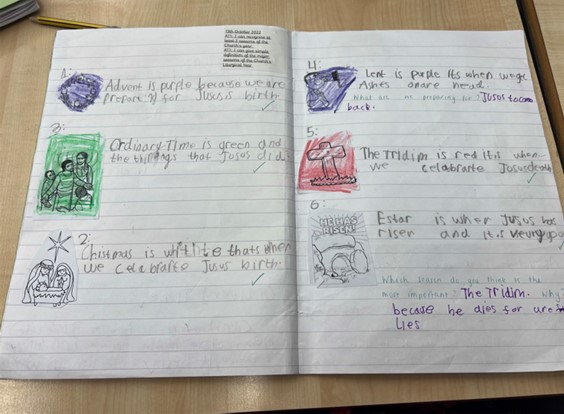 14th October 2022
AT1: I can recognise at
least 3 seasons of the
Church's year.
AT1: I can give simple
definition of the major
seasons of the Church's
Liturgical Year.
1:
Advent is purple because we are
Prepare for Jusus is birth
3:
Ordinary Time is green and
the things that Jusus did
2:
Chistmas is whtite thats when
we celabrate Jusus birth
4:
Lent is purple its when we get
Ashes on are head.
What are we preparing for? Jusus to come
back.
5:
The Tridim is red it is when
we celabrarte Jusus death
6:
HE HAS
RISEN!
Estar is when Jusus has
risen and it is
Which season do you think is the
most important? The Tridim. Why?
because he dies for are
Lies